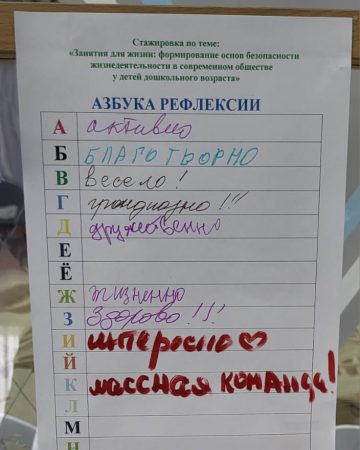 Стажировка по теме:
«Занятия для жизни: формирование основ безопасности
жизнедеятельности в современном обществе
у детей дошкольного возраста»
АЗБУКА РЕФЛЕКСИИ
А активно
Б БЛАГОТВОРНО
В весело!
Г грандиозно!!!
Д дружественно
Е
Ё
Ж жизненно
З Здорово!!!
И интересно
Й
К классная команда!
Л
М
Н